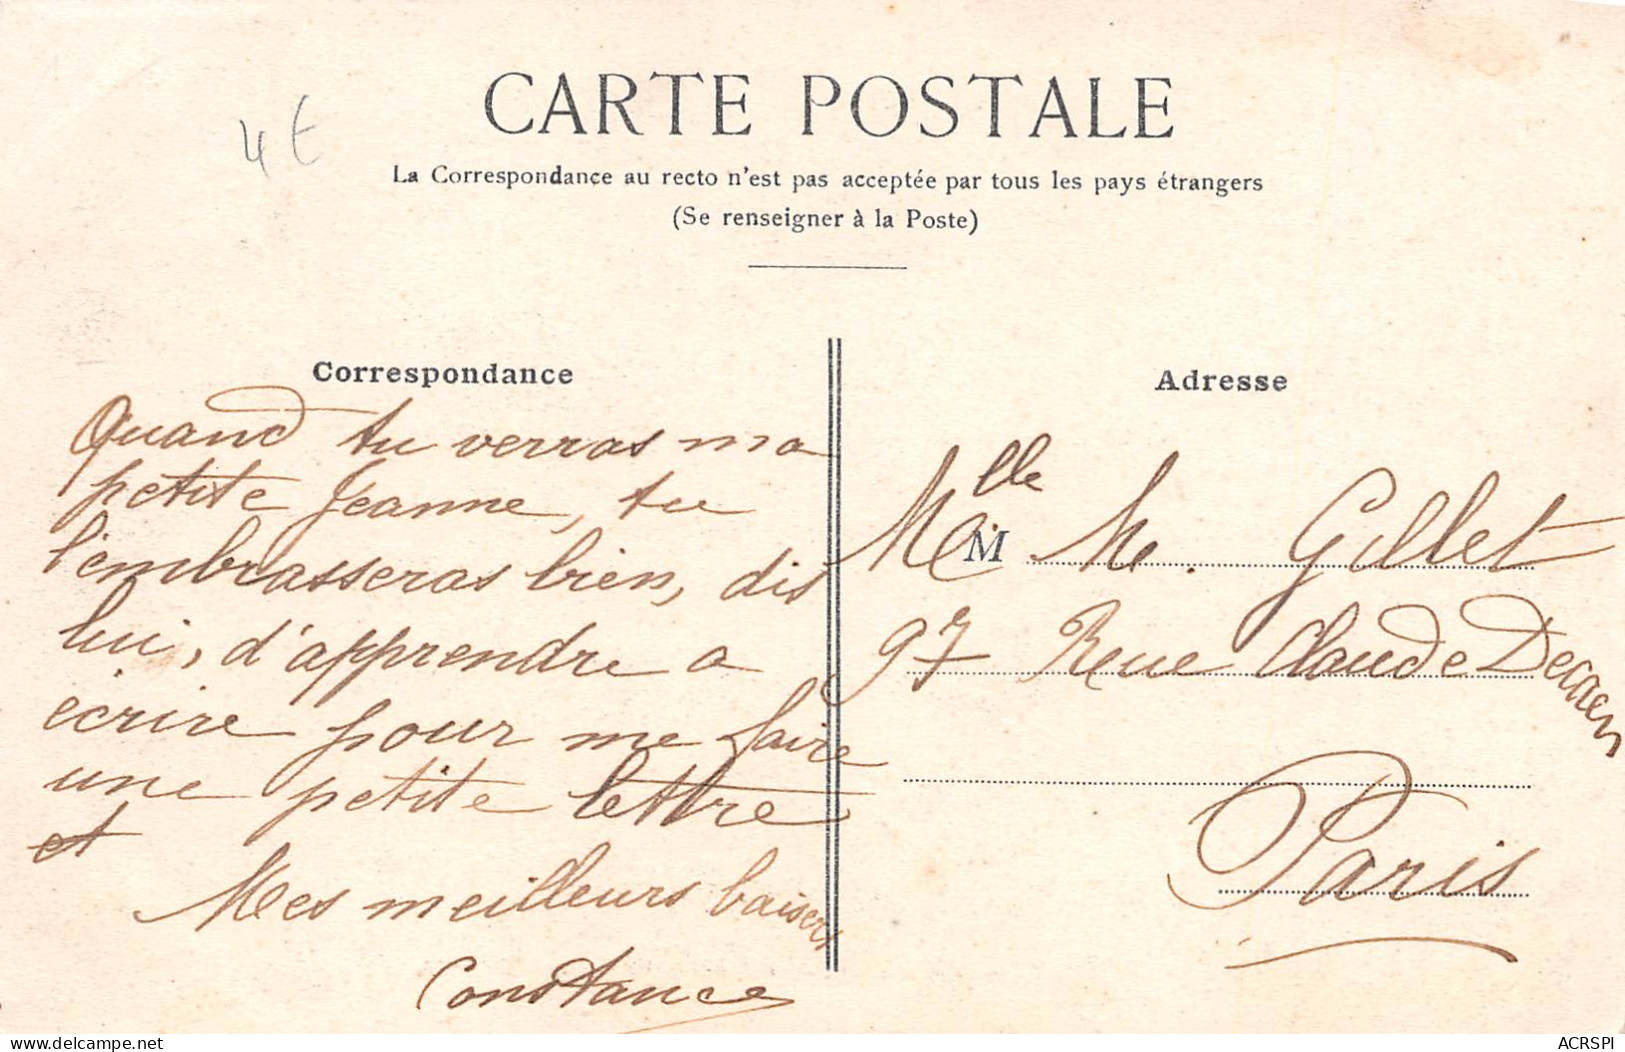 4 €
CARTE POSTALE
La Correspondance au recto n'est pas acceptée par tous les pays étrangers
(Se renseigner à la Poste)
Correspondance
Quand tu verras ma
petite Jeanne, tu
l'embrasseras bien, dis
lui, d'apprendre a
écrire pour me faire
une petite lettre
et
Mes meilleurs baisers
Constance
Adresse
Melle M M. Gillet
97 Rue Claude Decaen
Paris
www.delcampe.net
ACRSPI